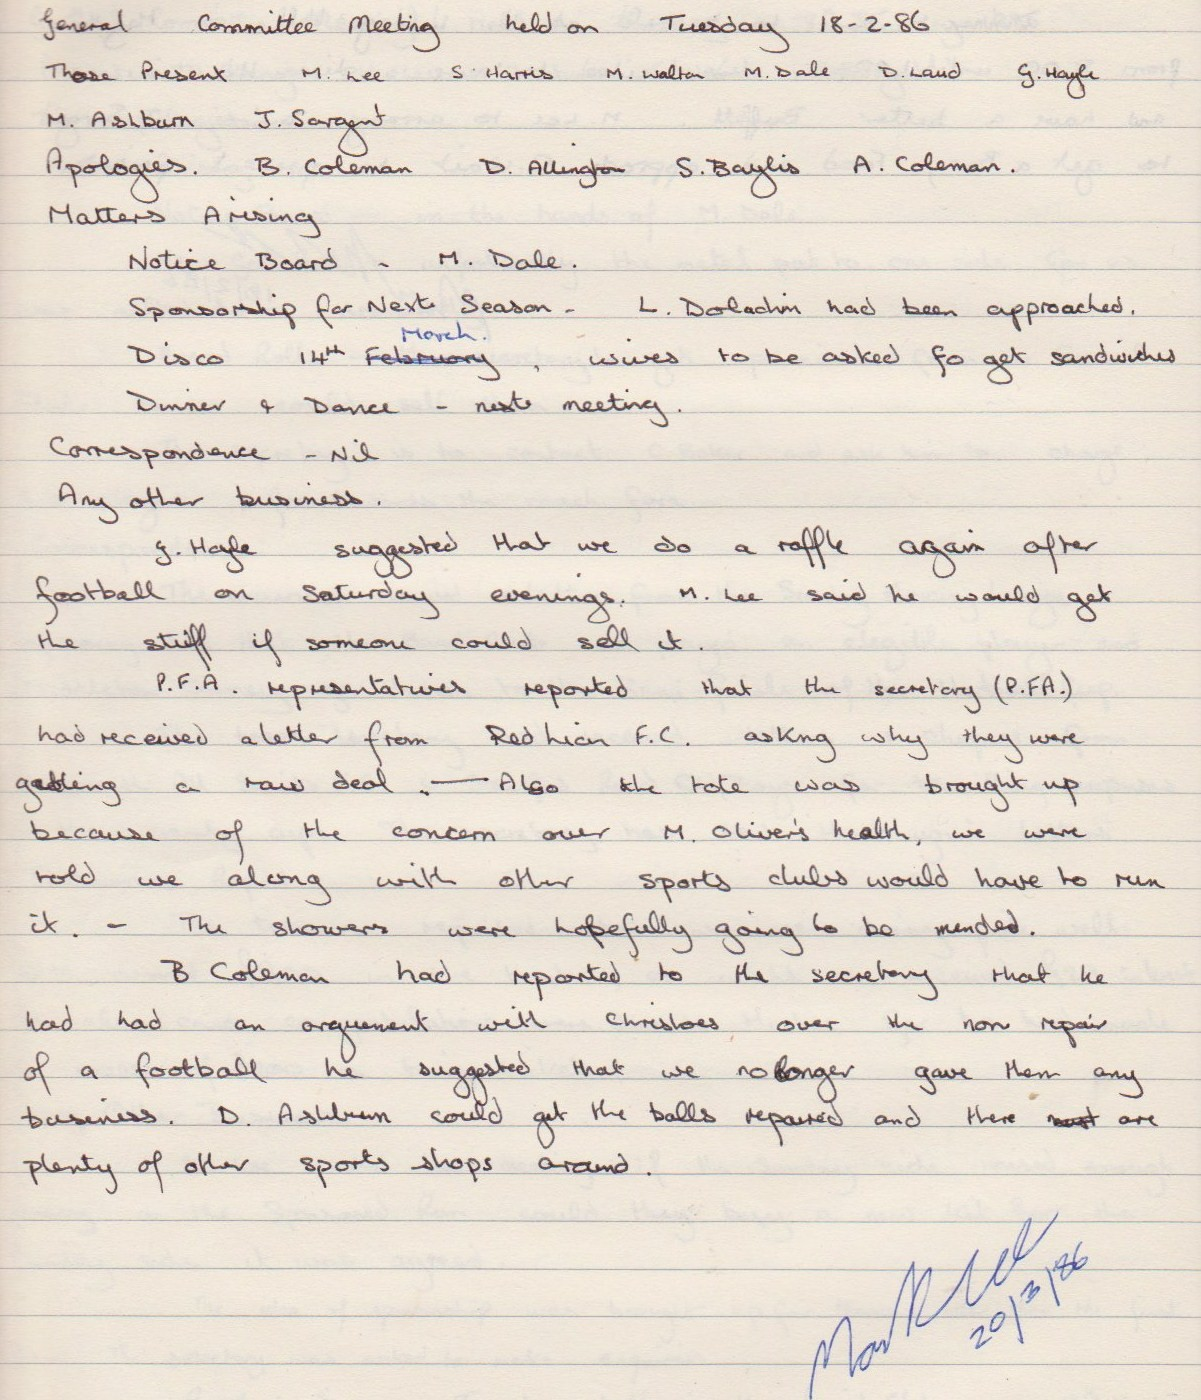 General Committee Meeting held on Tuesday 18-2-86
Those Present M. Lee S. Harris M. Walton M. Dale D. Laud G. Hayle
M. Ashburn J. Sargent
Apologies. B. Coleman D. Allington S. Baylis A. Coleman.
Matters Arising
Notice Board - M. Dale.
Sponsorship for Next Season - L. had been approached.
March.
Disco 14th February, wives to be asked fo get sandwiches
Dinner & Dance - next meeting.
Correspondence - Nil
Any other business.
G. Hayle suggested that we do a raffle again after
football on Saturday evenings. M. Lee said he would get
the stuff if someone could sell it.
P.F.A. representatives reported that the secretary (P.FA.)
had received a letter from Red Lion F.C. asking why they were
getting a raw deal. — Also the tote was brought up
because of the concern over M. Oliver's health, we were
told we along with other sports clubs would have to run
it. - The showers were hopefully going to be mended.
B Coleman had reported to the secretary that he
had had an arguement with over the non repair
of a football he suggested that we no longer gave them any
business. D. Ashburn could get the balls repaired and there are
plenty of other sports shops around.
Mark Lee
20/3/86